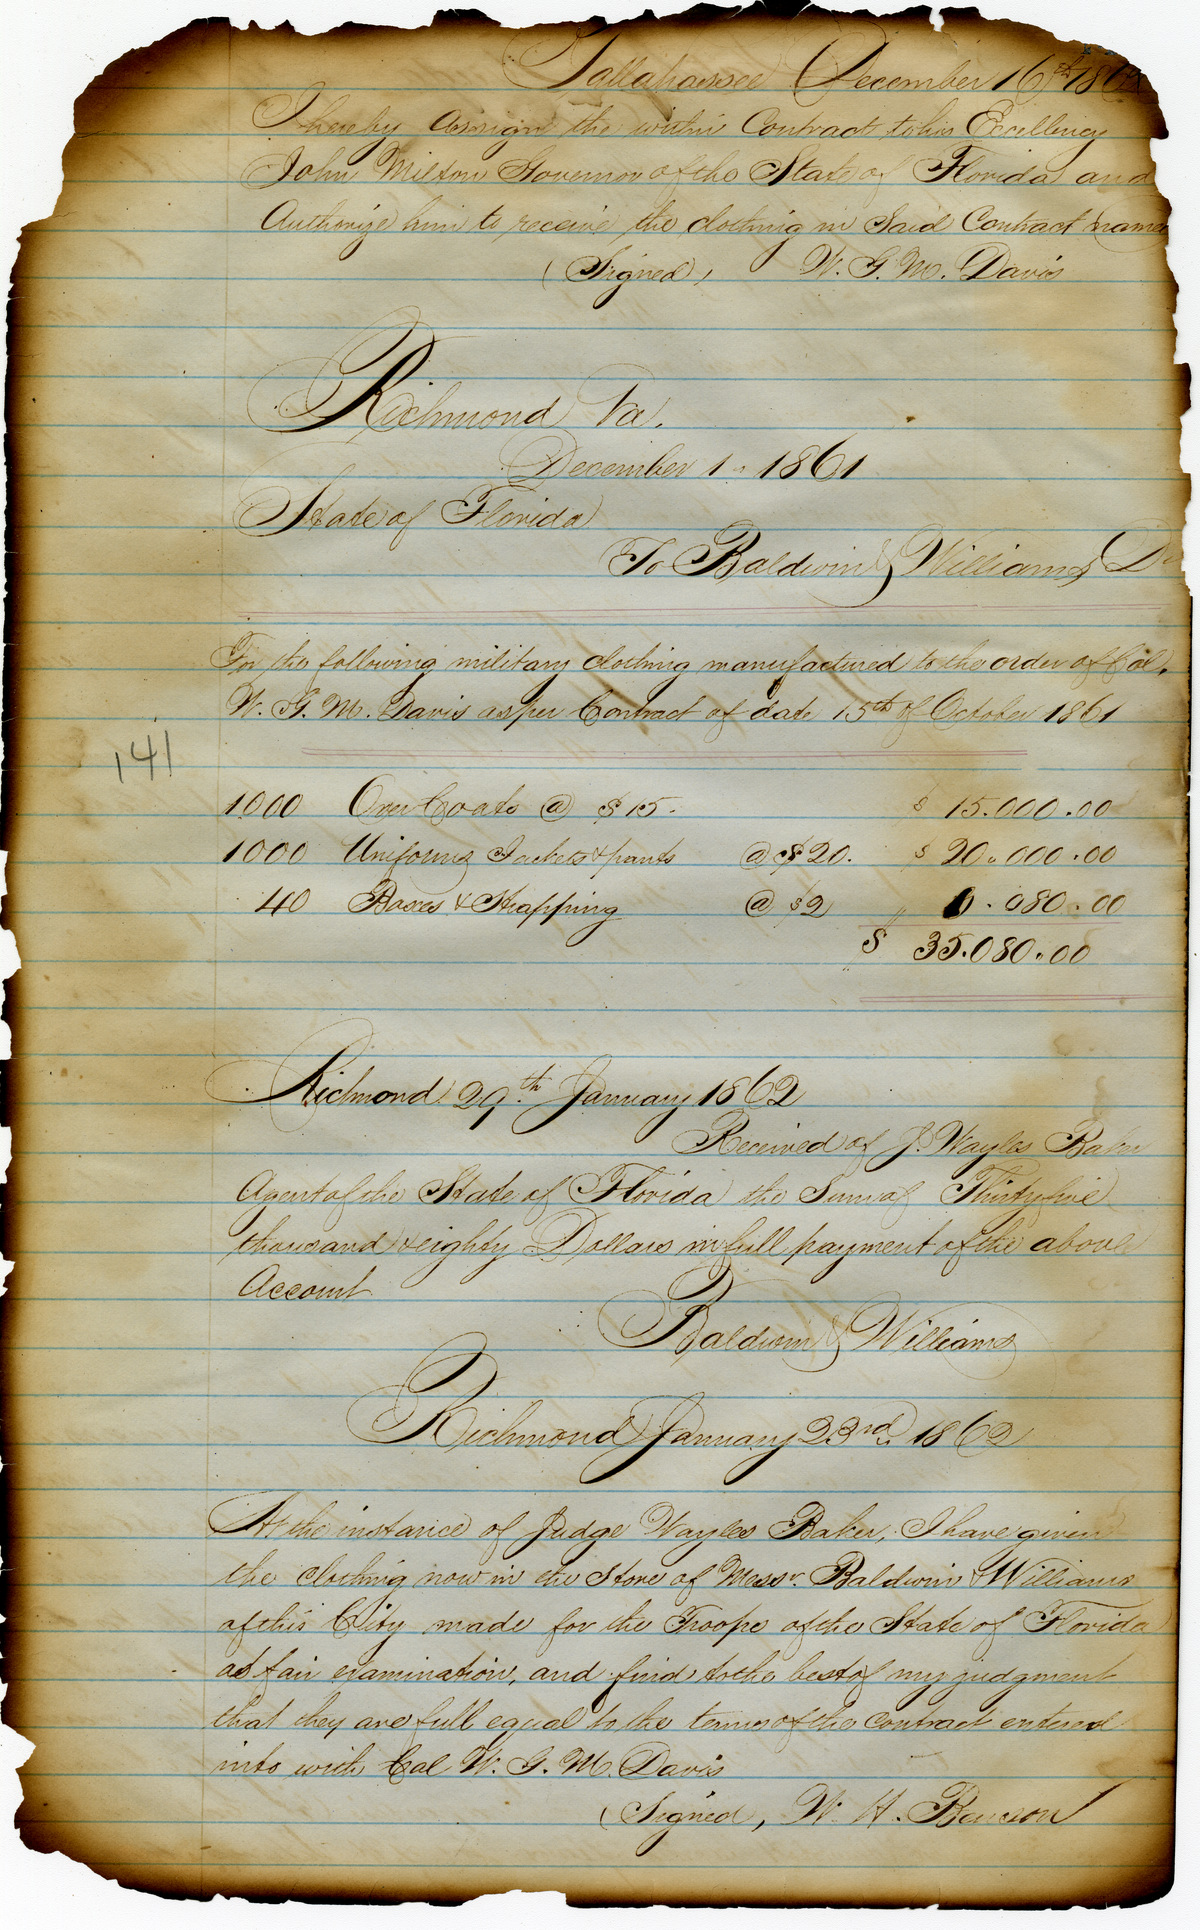 Tallahassee December 16th 186
I hereby assign the within Contract to his Excellency
John Milton Governor of the State of Florida and
Authorize him to receive the clothing in Said Contract name
(Signed) W. G. M. Davis
Richmond Va.
December 1 " 1861
State of Florida
To Baldwin & Williams Dr
For the following military clothing manufactured to the order of Col.
W. G. M. Davis as per Contract of date 15th of October 1861
141
1000 Over Coats @ $15. $ 15.000.00
1000 Uniforms Jackets & pants @ $20. $ 20.000.00
40 Boxes & Strapping @ $2 " 0.080.00
$ 35.080.00
Richmond 29th January 1862
Received of J. Wayles Baker
Agent of the State of Florida the Sum of Thirty five
thousand & eighty Dollars in full payment of the above
Account
Baldwin & Williams
Richmond January 23rd 1862
At the instance of Judge Wayles Baker, I have given
the clothing now in the Store of Messr. Baldwin & Williams
of this City made for the Troops of the State of Florida
a fair examination, and find to the best of my judgment
that they are full equal to the terms of the contract entered
into with Col W. G. M. Davis
(Signed, W. H.